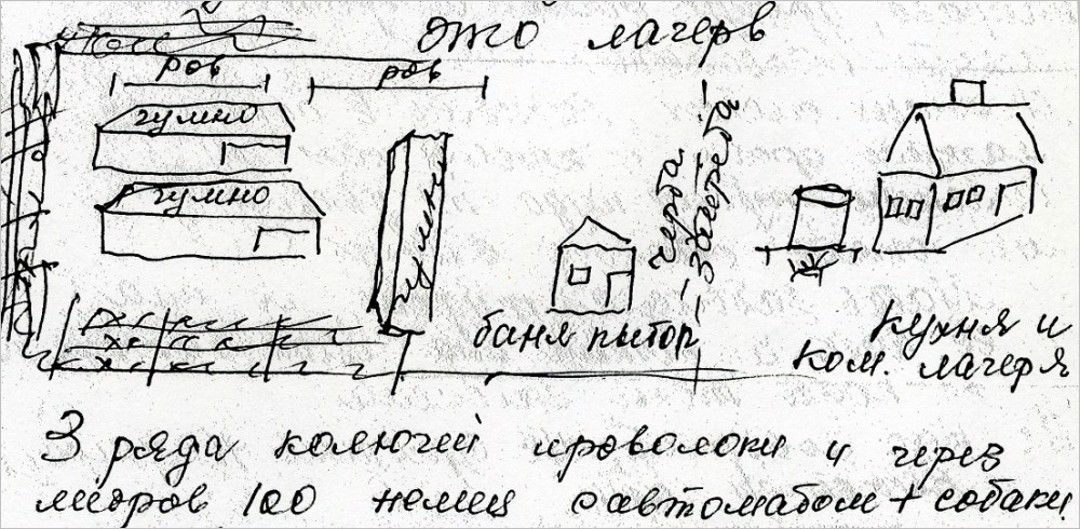 это лагерв
ров
ров
гумно
гумно
гумно
черта
зачерета
баня пытор
кухня и
ком. лагеря
3 ряда колючей проволоки и через
метров 100 немец с автоматом + собаки